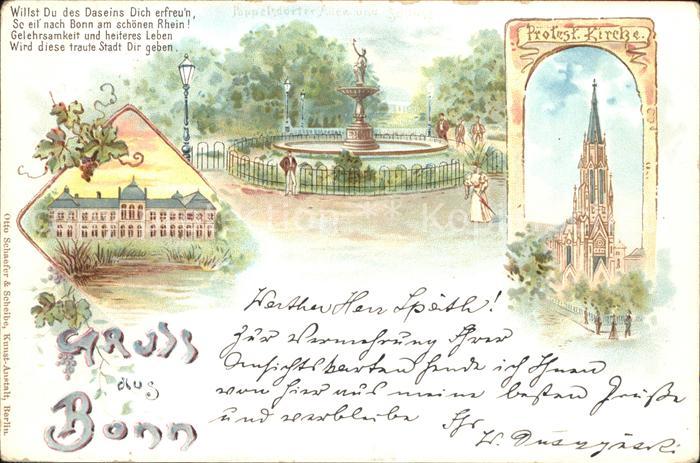 Willst Du des Daseins Dich erfreu'n,
So eil' nach Bonn am schönen Rhein!
Gelehrsamkeit und heiteres Leben
Wird diese traute Stadt Dir geben.
Poppelsdorfer Allee und
Protest. Kirche.
Otto Schaefer & Scheibe, Kunst-Anstalt, Berlin.
Gruss
aus
Bonn
Werther Herr Späth!
Zur Vermehrung Ihrer
Ansichtskarten sende ich Ihnen
von hier aus meine besten Grüße
und verbleibe Ihr
W.